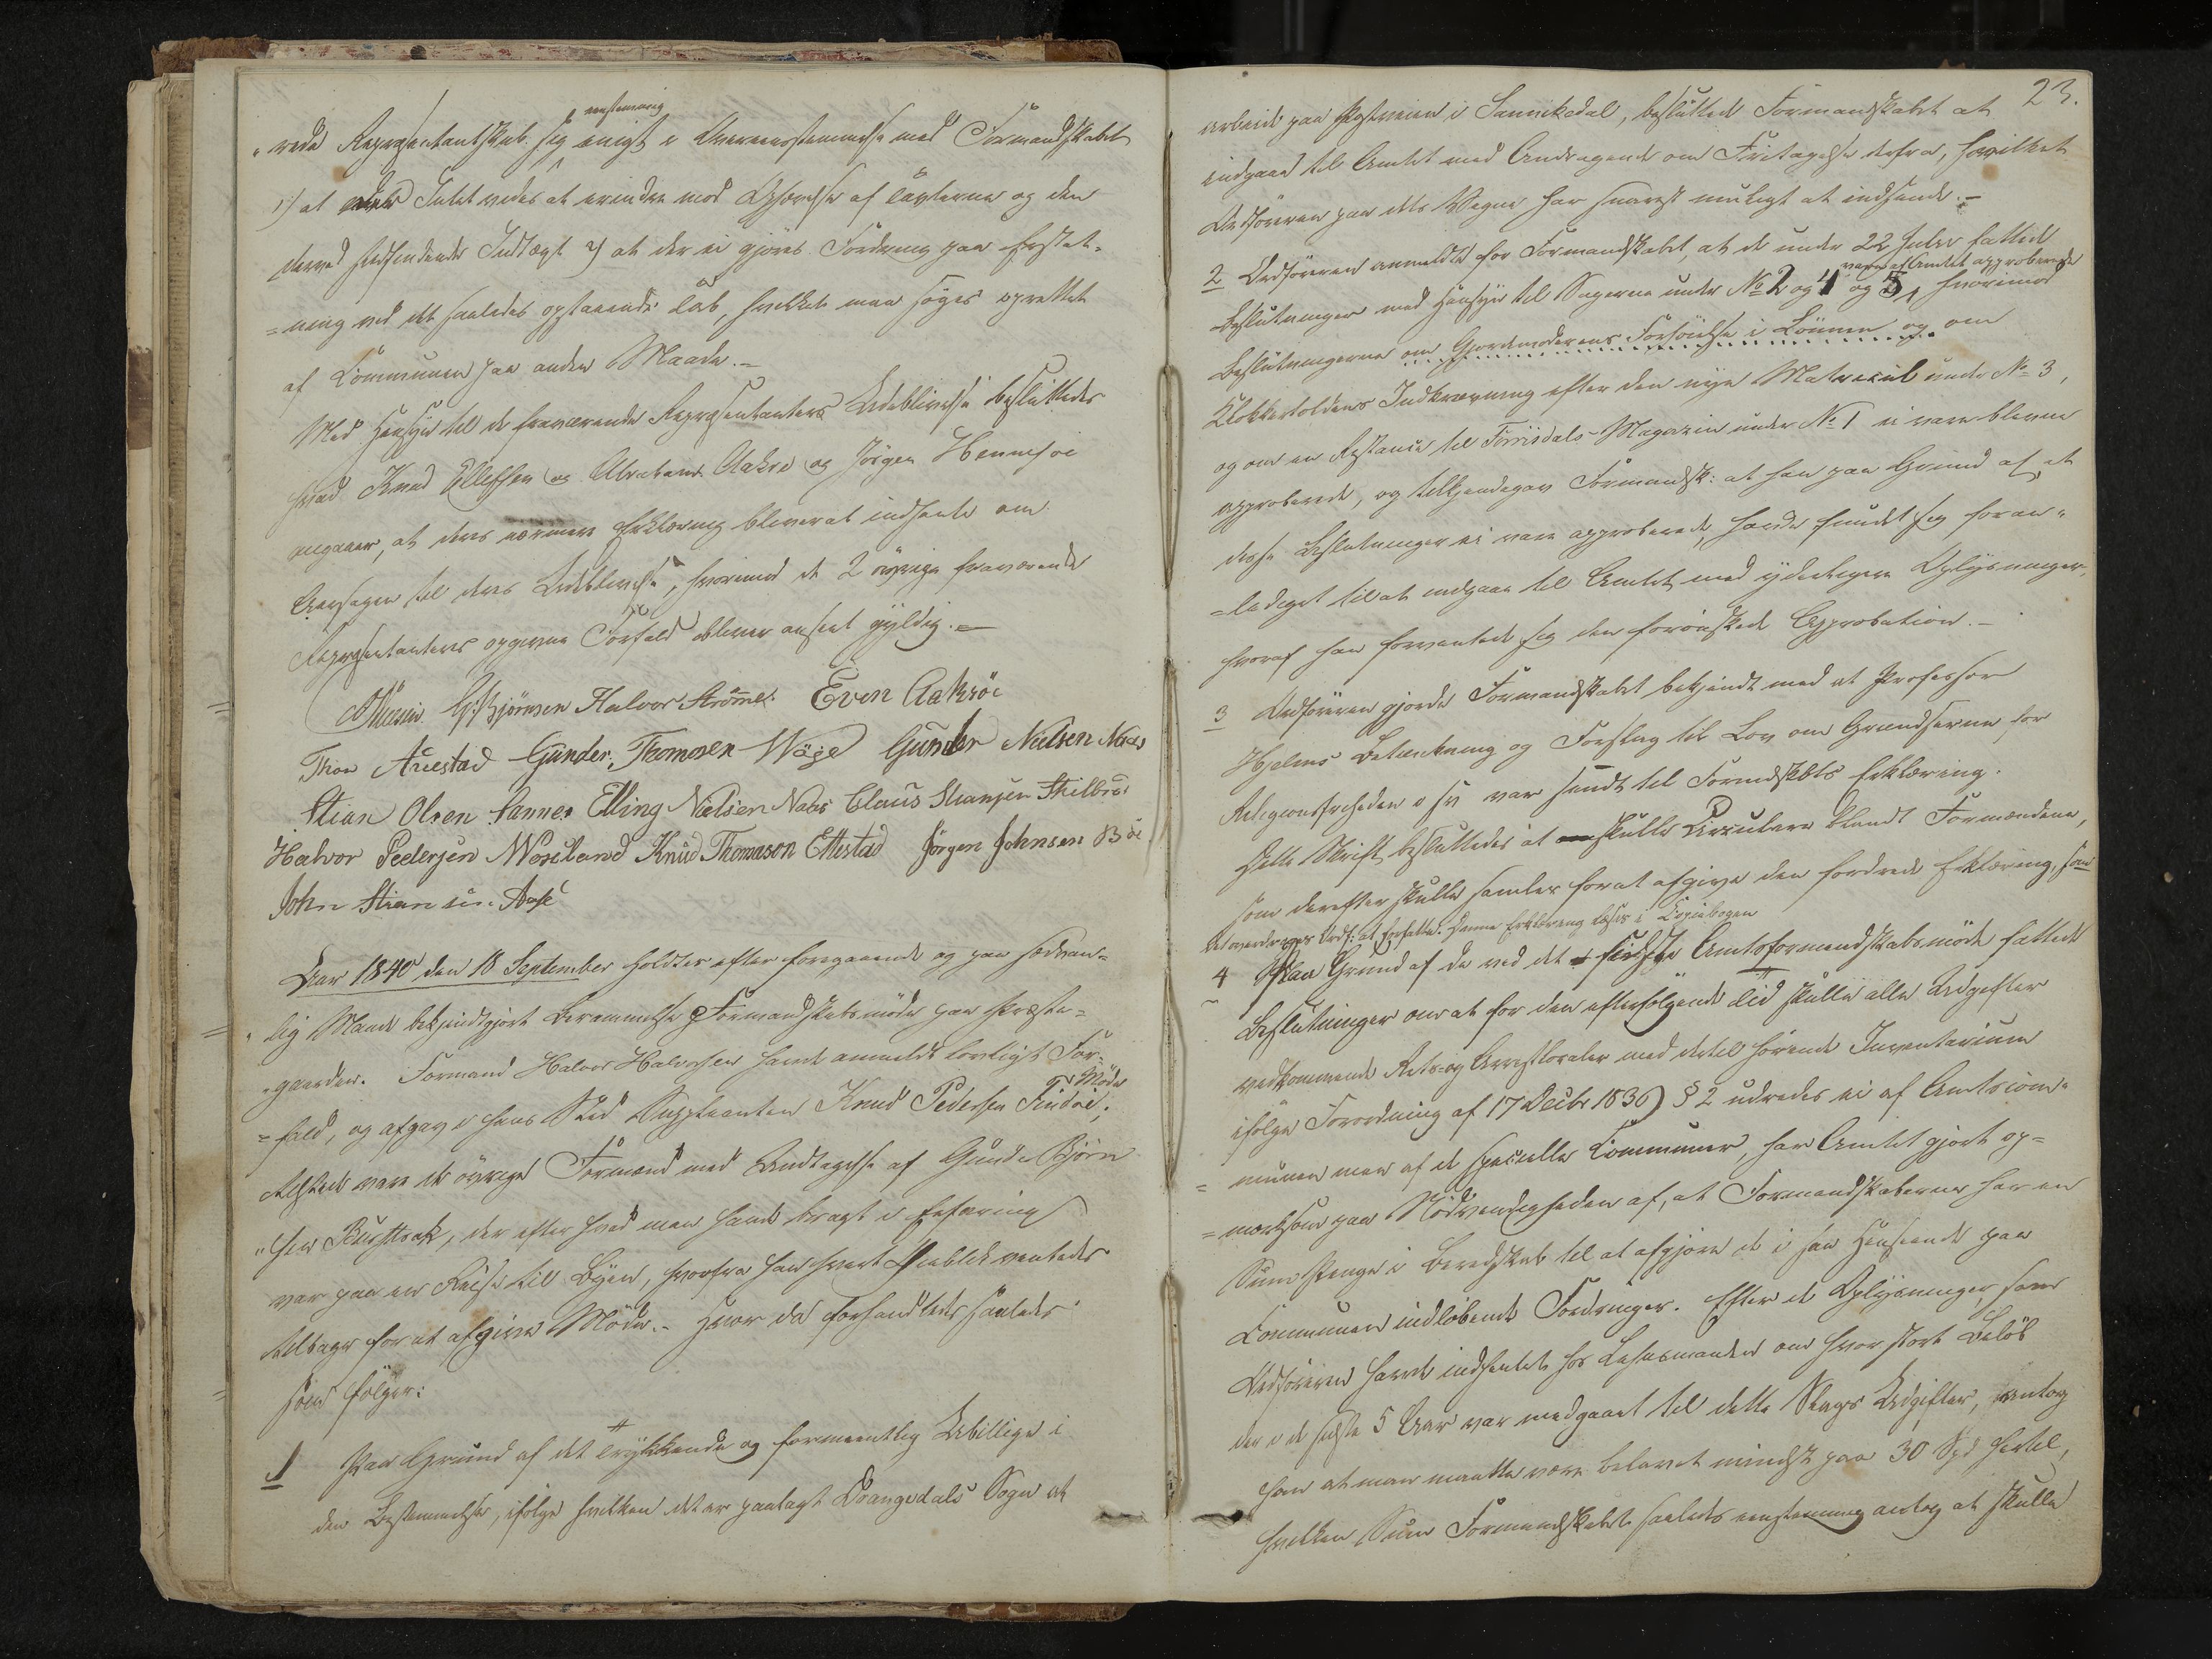 eenstemmig
rede Repræsentantskab. sig enigt i Overeensstemmelse med Formandskabet
1) at Intet vides at erindre mod Ophævelse af Taxterne og den
derved stedfindende Indtægt 2) at der ei gjøres Fordring paa Erstat-
=ning ved det saaledes opstaaende Tab, hvilket man søges oprettet
af Communen paa anden Maade.-
Med Hensyn til de fraværende Repræsentanters Udeblivelse besluttedes
hvad Knud Ellefsen og Abraham Aakre og Jörgen Hennesöe
angaaer, at deres nærmere Erklæring bliver at indhente om
Aarsagen til deres Udeblivelse, hvorimod de 2 øvrige fraværende
Repræsentanters opgivne Forfald bliver anseet gyldig.-
G. Björnsen Halvor Strömme. Even Aaksöe
Thor Auestad Gunder Thomesen Wåge Gunder Nielsen Næs
Stian Olsen Sannes Elling Nielsen Næs Claus
Halvor Pedersen Woseland Knud Thomason Ettestad Jörgen Johnsen Böe
John Stiansen Aase
Aar 1840 den 18 September holdtes efter foregaaende og paa sædvan-
lig Maade bekjendtgjort Berammelse Formandskabsmöde paa Præste-
gaarden. Formand Halvor Halvorsen havde anmeldt lovligt For-
=fald, og afgav i hans Sted Suppleanten Knud Pedersen Findöe Möde
tilstede vare de övrige Formænd med Undtagelse af Gunder Björn-
sen , der efter hvad man havde bragt i Erfaring
var paa en Reise til Byen, hvorfra han hvert Øieblik ventedes
tilbage for at afgive Möde.- Hvor da forhandledes saaledes
som fölger:
1 Paa Grund af det Trykkende og formeentlig Ubillige i
den Bestemmelse, ifölge hvilken det er paalagt Drangedals Sogn at
23.
arbeide paa Postveien i Sannikedal, besluttede Formandskabet at
indgaae til Amtet med Andragende om Fritagelse derfra, hvilket
Ordføreren paa dets Vegne har snarest muligt at indsende.-
2 Ordföreren anmeldte for Formandskabet, at de under 22 Juli fattede
vare af Amtet approberede
Beslutninger med Hensyn til Sagerne under No 2 og 4 og 5, hvorimod
Beslutningerne om Gjordemoderens Forhöielse i Lönnen og om
Klokkertoldens Indkrævning efter den nye Matrecul under No 3,
og om en Restance til Törrisdals-Magazin under No 1 ei vare blevne
approberede, og tilkjendegav Formandsk: at han paa Grund af, at
disse Beslutninger ei vare approberede, havde fundet sig foran-
=lediget til at indgaae til Amtet med yderligere Oplysninger,
hvoraf han forventede sig den forönskede Approbation.-
3 Ordföreren gjorde Formandskabet bekjendt med at Professor
Hjelms Betænkning og Forslag til Lov om Grændserne for
Religionsfriheden var sendt til Formdskbts Erklæring.
Dette Skrift besluttedes at skulle Circulere blandt Formændene,
som derefter skulle samles for at afgive den fordrede Erklæring, som
det overdrages Ordf: at forfatte. Denne Erklæring læses i Copiebogen
4 Paa Grund af de ved det sidste Amtsformandskabsmöde fattede
Beslutninger om at for den efterfölgende Tid skulle alle Udgifter
vedkommende Rets- og Arrestlocaler med dertil hörende Inventarium
ifölge Forordning af 17 Decbr 1836) § 2 udredes ei af Amtscom-
=munen men af de specielle Communer, har Amtet gjort op-
=mærksom paa Nödvendigheden af, at Formandskaberne har en
Sum Penge i Beredskab til at afgjøre de i saa Henseende paa
Communen indlöbende Fordringer. Efter de Oplysninger, som
Ordföreren havde indhentet hos Lehnsmanden om hvor stort Belöb
der i de sidste 5 Aar var medgaaet til dette Slags Udgifter, antog
han at man maatte være belavet mindst paa 30 Spd hertil,
hvilken Sum Formandskabet saaledes eenstemmig antog at skulle